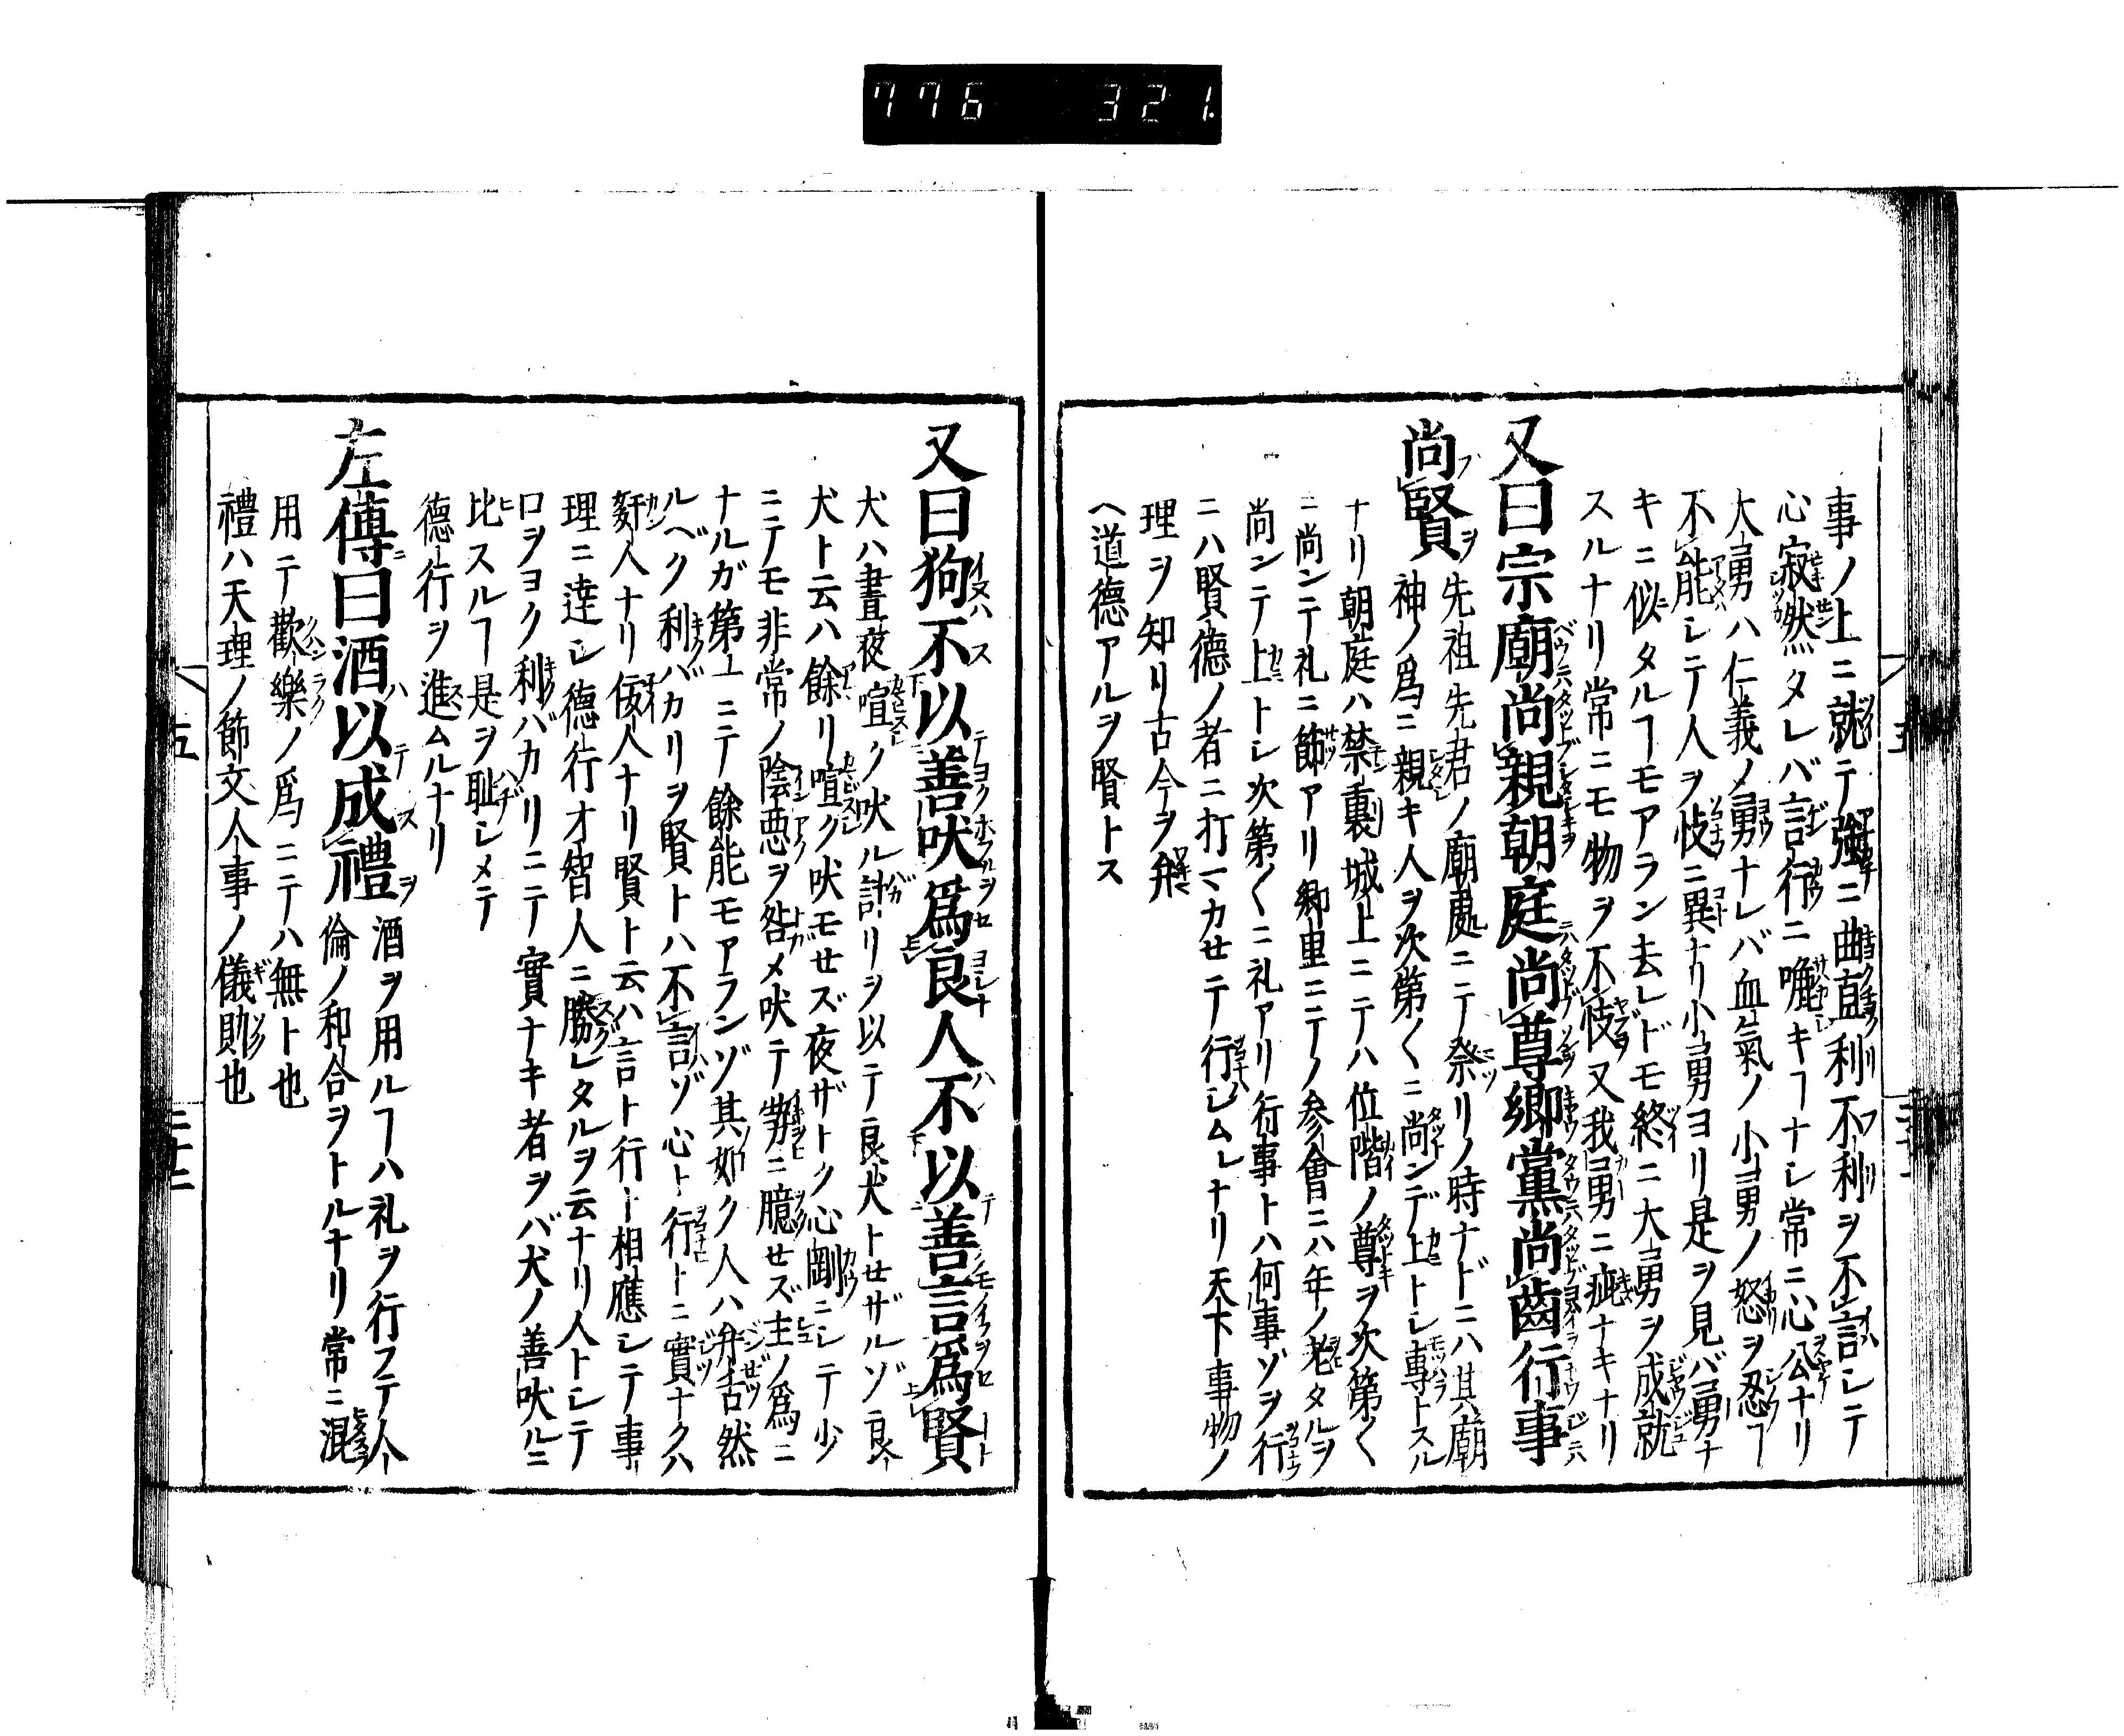 776 321.
事ノ上ニ就テ強ニ曲直利不利ヲ不言シテ
心寂然タレバ言行ニ囉キヿナシ常ニ心公ナリ
大勇ハ仁義ノ勇ナレバ血氣ノ小勇ノ怒ヲ忍ヿ
不能シテ人ヲ忮ニ異ナリ小勇ヨリ是ヲ見バ勇ナ
キニ似タルヿモアラン去レドモ終ニ大勇ヲ成就
スルナリ常ニモ物ヲ不忮又我勇ニ疵ナキナリ
又曰宗廟尚親朝庭尚尊鄉黨尚齒行事
尚賢 先祖先君ノ廟處ニテ祭リノ時ナドニハ其廟
神ノ爲ニ親キ人ヲ次第〱ニ尚ンデ上トシ專トスル
ナリ朝庭ハ禁裏城上ニテハ位階ノ尊ヲ次第〱
ニ尚ンテ礼ニ節アリ鄉里ニテノ参會ニハ年ノ老タルヲ
尚ンテ上トシ次第〱ニ礼アリ行事トハ何事ゾヲ行
ニハ賢德ノ者ニ打マカせテ行シムレナリ天下事物ノ
理ヲ知リ古今ヲ弁
ヘ道德アルヲ賢トス
又曰狗不以善吠爲良人不以善言爲賢
犬ハ晝夜喧ク吠ル計リヲ以テ良犬トせザルゾ良
犬ト云ハ餘リ喧ク吠モせズ夜ザトク心剛ニシテ少
ニテモ非常ノ陰悪ヲ咎メ吠テ勢ニ臆せズ主ノ爲ニ
ナルガ第一ニテ餘能モアランゾ其如ク人ハ弁舌然
ルベク利バカリヲ賢トハ不言ゾ心ト行トニ實ナクハ
姧人ナリ佞人ナリ賢ト云ハ言ト行ト相應シテ事
理ニ達シ德行才智人ニ勝レタルヲ云ナリ人トシテ
口ヲヨク利バカリニテ實ナキ者ヲバ犬ノ善吠ルニ
比スルヿ是ヲ恥シメテ
德行ヲ進ムルナリ
左傳曰酒以成禮 酒ヲ用ルヿハ礼ヲ行フテ人
倫ノ和合ヲトルナリ常ニ混
用テ歡樂ノ爲ニテハ無ト也
禮ハ天理ノ節文人事ノ儀則也